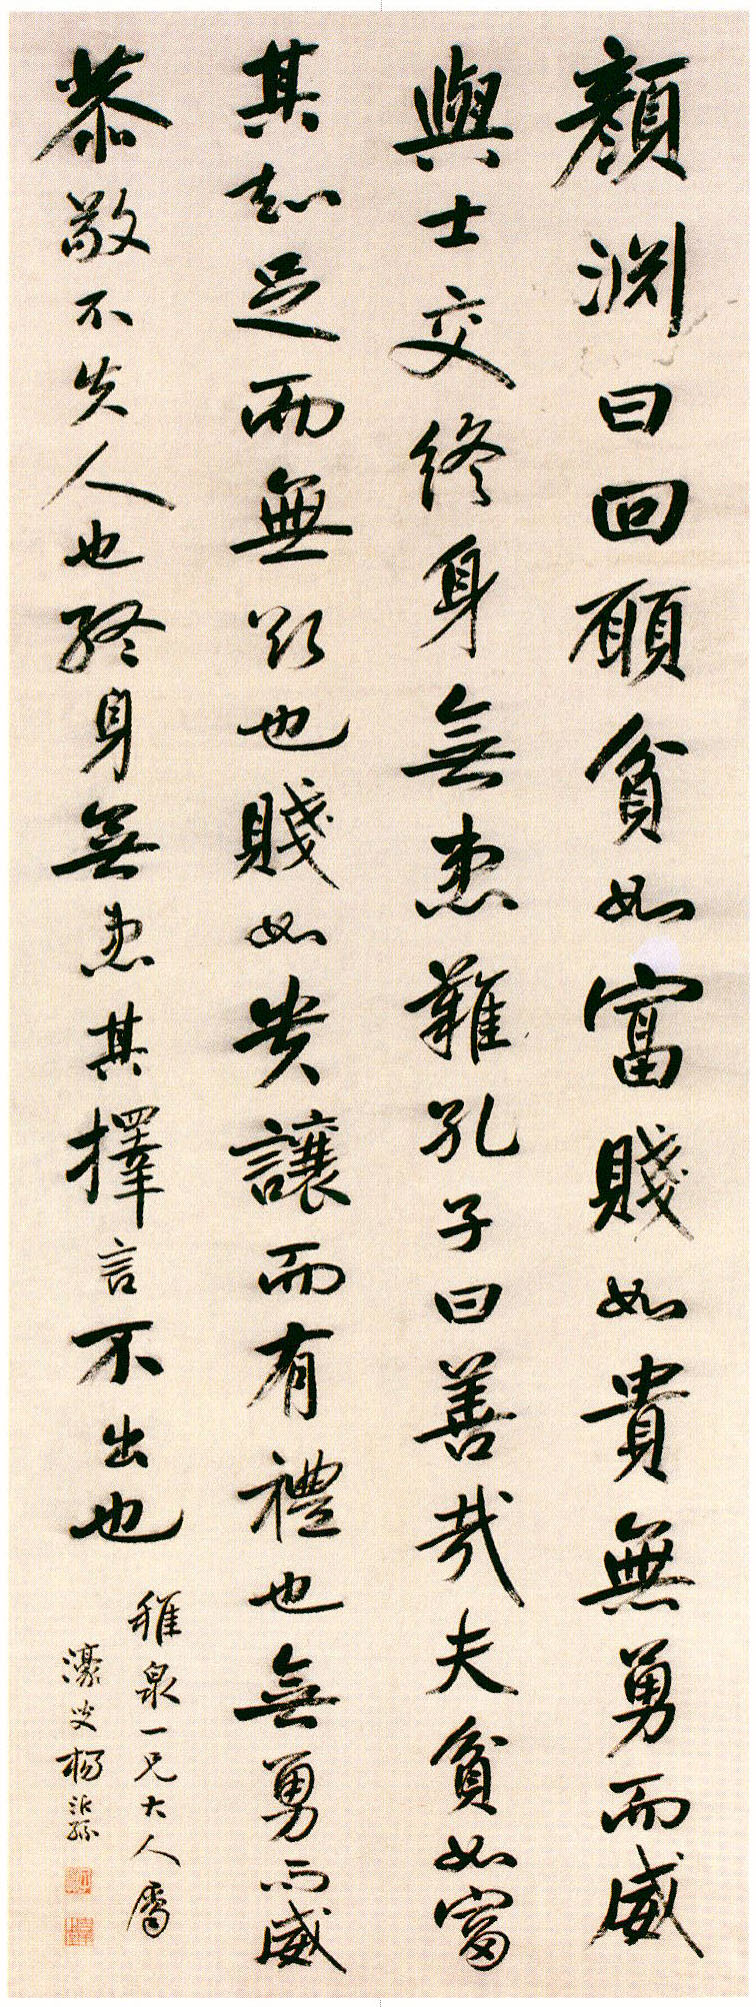 顏淵曰回願貧如富賤如貴無勇而威
與士交終身無患難孔子曰善哉夫貧如富
其知足而無欲也賤如貴讓而有禮也無勇而威
恭敬不失人也終身無患其擇言不出也
稚泉一兄大人屬
濠叟楊沂孫